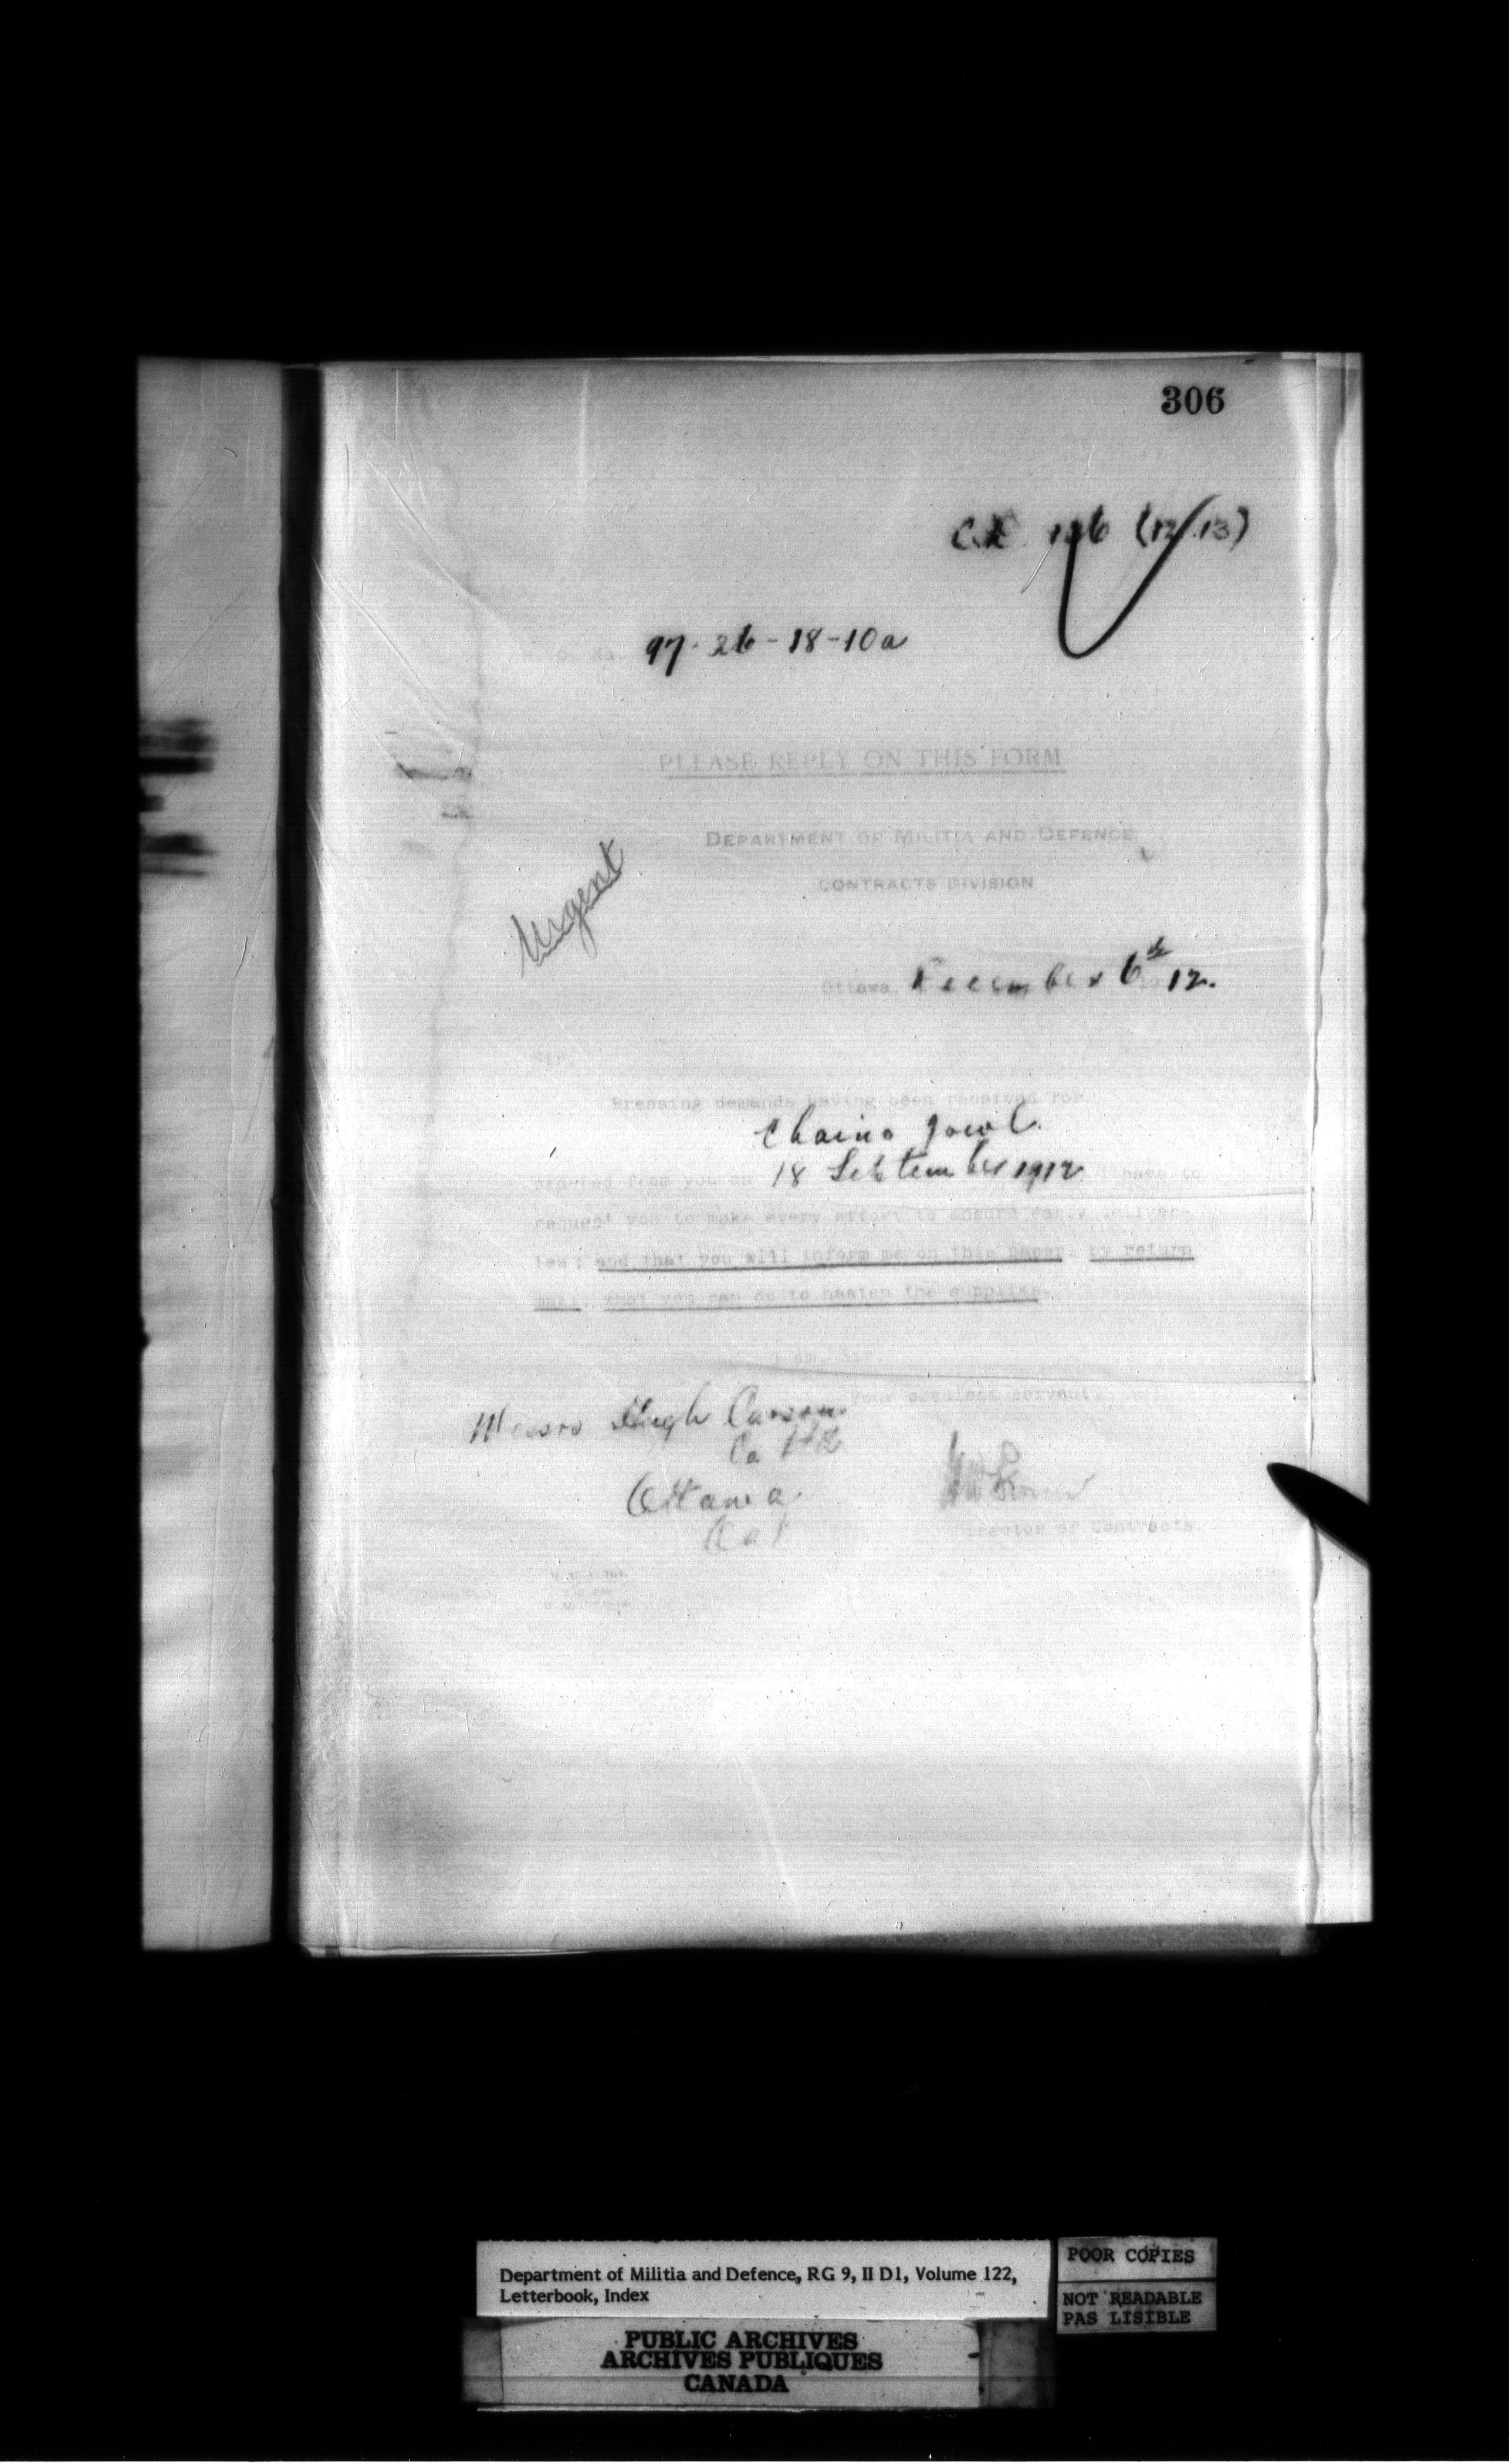 306
C.L. 126 (12/13)
H. Q. No. 97-26-18-10a
PLEASE REPLY ON THIS FORM
DEPARTMENT OF MILITIA AND DEFENCE
CONTRACTS DIVISION
Urgent
Ottawa, December 6th 1912.
Sir,
Pressing demands having been received for
Chains Jowl
ordered from you on 18 September 1912 I have to
request you to make every effort to ensure early deliver-
ies; and that you will inform me on this paper, by return
mail, what you can do to hasten the supplies.
I am, Sir,
Your obedient servant,
Messrs Hugh Carson
Co Ltd
Ottawa
Ont
Director of Contracts.
Department of Militia and Defence, RG 9, II D1, Volume 122,
Letterbook, Index
POOR COPIES
NOT READABLE
PAS LISIBLE
PUBLIC ARCHIVES
ARCHIVES PUBLIQUES
CANADA